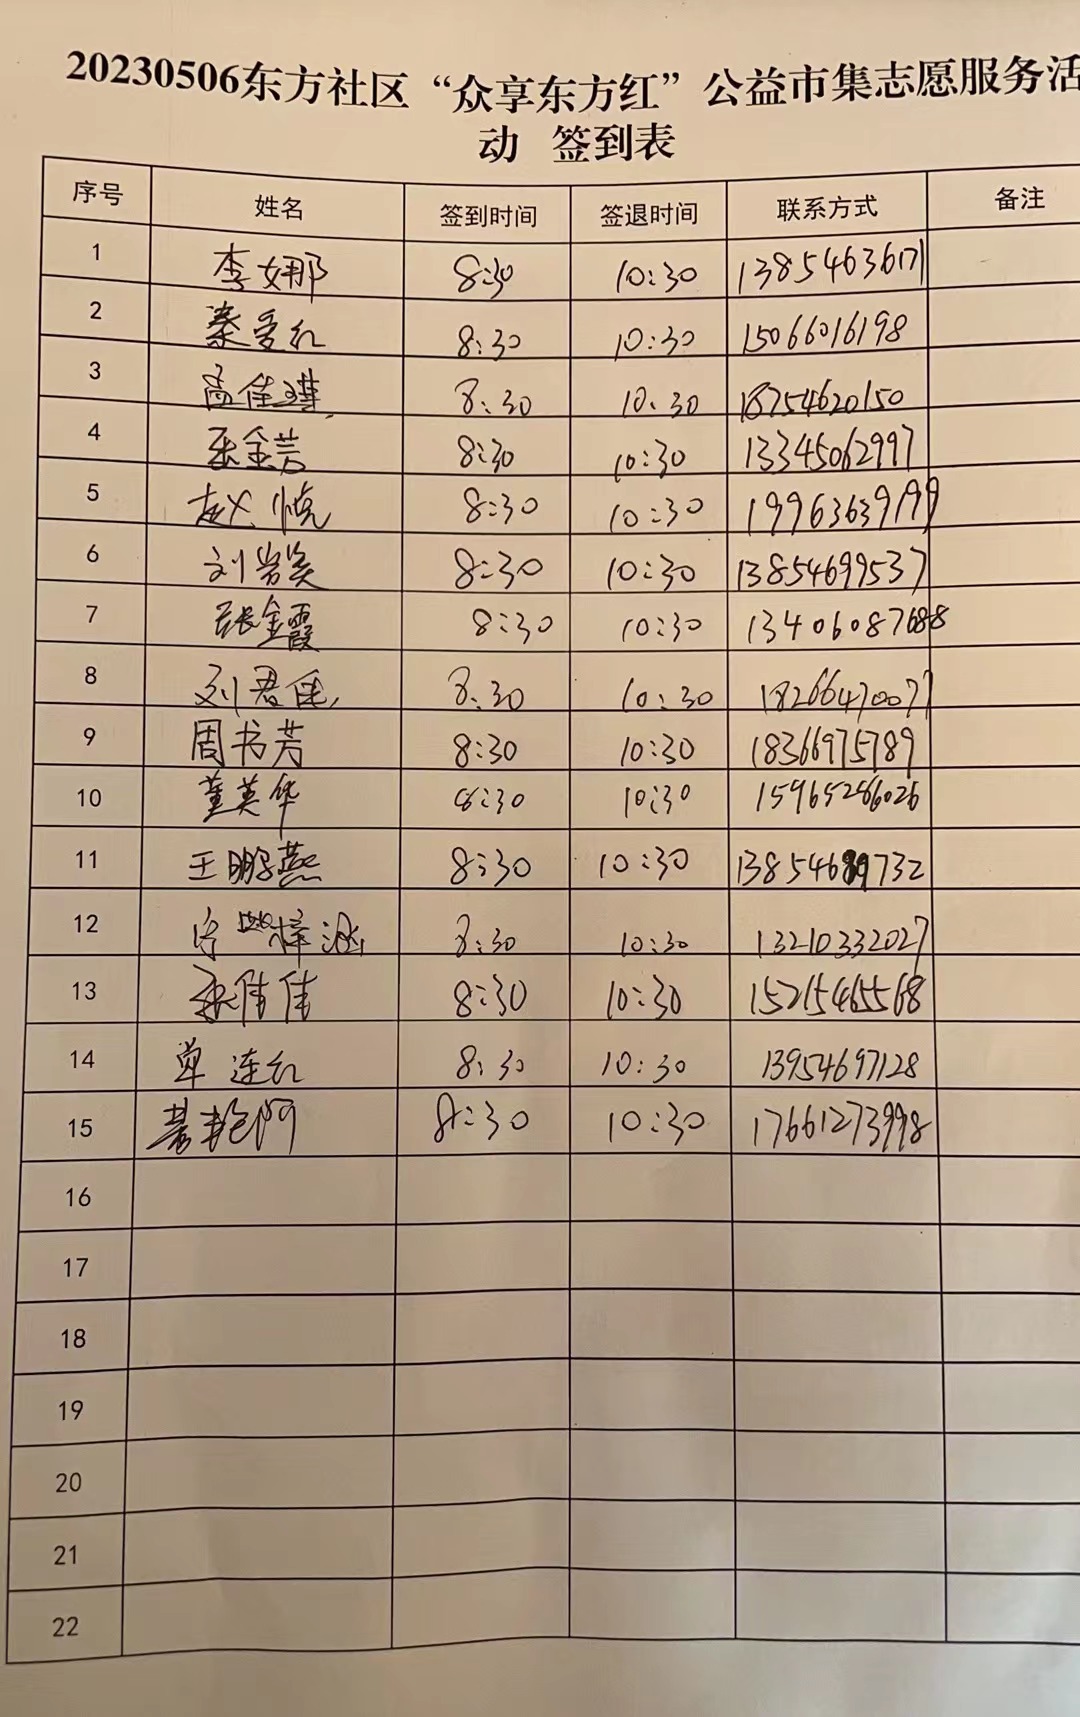 20230506东方社区“众享东方红”公益市集志愿服务活
动 签到表
序号 姓名 签到时间 签退时间 联系方式 备注
1 李娜 8:30 10:30 13854636171
2 秦爱红 8:30 10:30 15066016198
3 高佳璇 8:30 10:30 18754620150
4 张金芳 8:30 10:30 13345062997
5 赵悦 8:30 10:30 19963639199
6 刘岩 8:30 10:30 13854699537
7 张金霞 8:30 10:30 13406087688
8 刘君佳 8:30 10:30 18266470077
9 周书芳 8:30 10:30 18366975789
10 董英华 8:30 10:30 15965286026
11 王鹏燕 8:30 10:30 13854689732
12 许梓涵 8:30 10:30 13210332027
13 张伟佳 8:30 10:30 15215465568
14 单连红 8:30 10:30 13954697128
15 8:30 10:30 17661273998
16
17
18
19
20
21
22